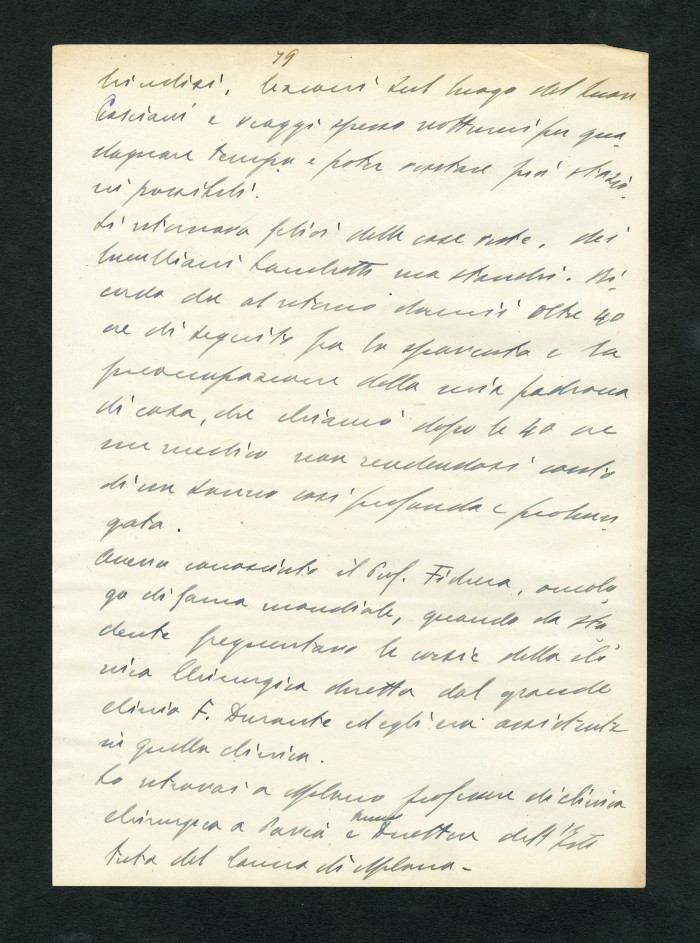 79
brindisi, lezioni sul luogo del buon
Casciani e viaggi spesso notturni per gua-
dagnare tempo e poter visitare più stazio-
ni possibili.
Si ritornava felici delle cose viste, dei
brillanti banchetti ma stanchi. Ri-
cordo che al ritorno dormii oltre 40
ore di seguito fra lo spavento e la
preoccupazione della mia padrona
di casa, che chiamò dopo le 40 ore
un medico non rendendosi conto
di un sonno così profondo e prolun-
gato.
Avevo conosciuto il Prof. Fichera, oncolo-
go di fama mondiale, quando da stu
dente frequentavo le corsie della cli
nica Chirurgica diretta dal grande
clinico F. Durante ed egli era assistente
in quella clinica.
Lo ritrovai a Milano professore di clinica
chirurgica a Pavia e Direttore dell'Isti
tuto del cancro di Milano-